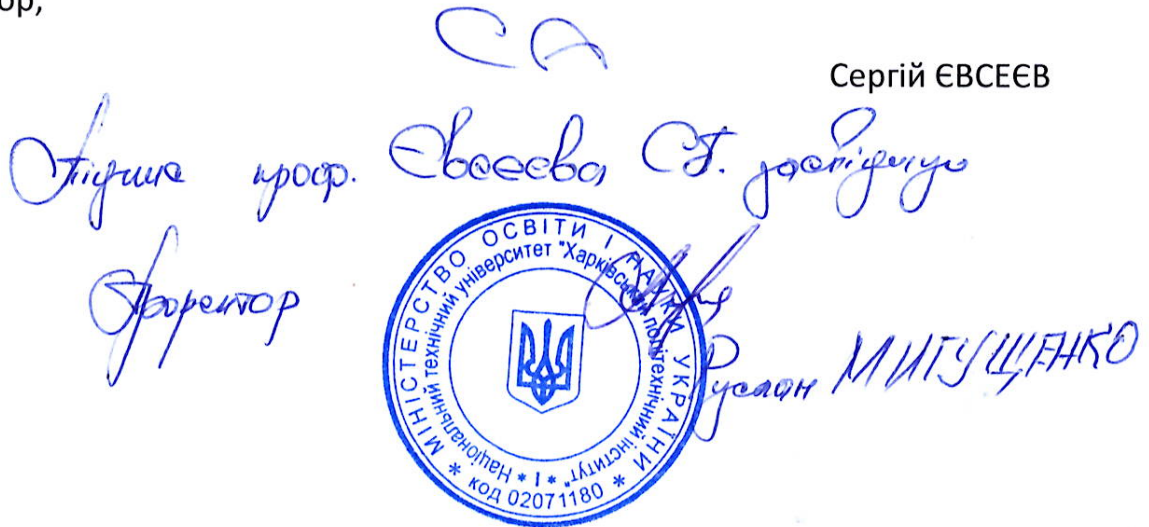 ор,
Сергій ЄВСЕЄВ
Підпис проф. Євсеєва С.П. засвідчую
Проректор
Руслан МИГУЩЕНКО
* МІНІСТЕРСТВО ОСВІТИ І НАУКИ УКРАЇНИ *
Національний технічний університет "Харківський політехнічний інститут" * 1 *
код 02071180